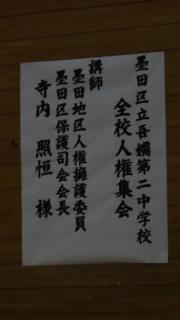 墨田区立吾嬬第二中学校
全校人権集会
講師
墨田地区人権擁護委員
墨田区保護司会会長
寺内 照恒 様